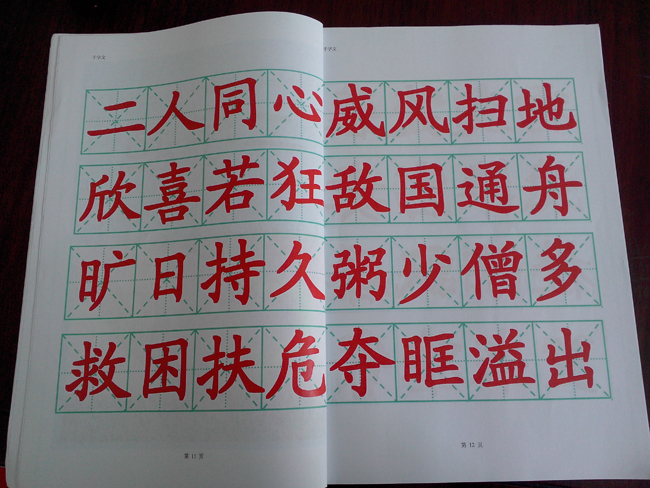 千字文
二人同心
欣喜若狂
旷日持久
救困扶危
第11页
千字文
威风扫地
敌国通舟
粥少僧多
夺眶溢出
第12页